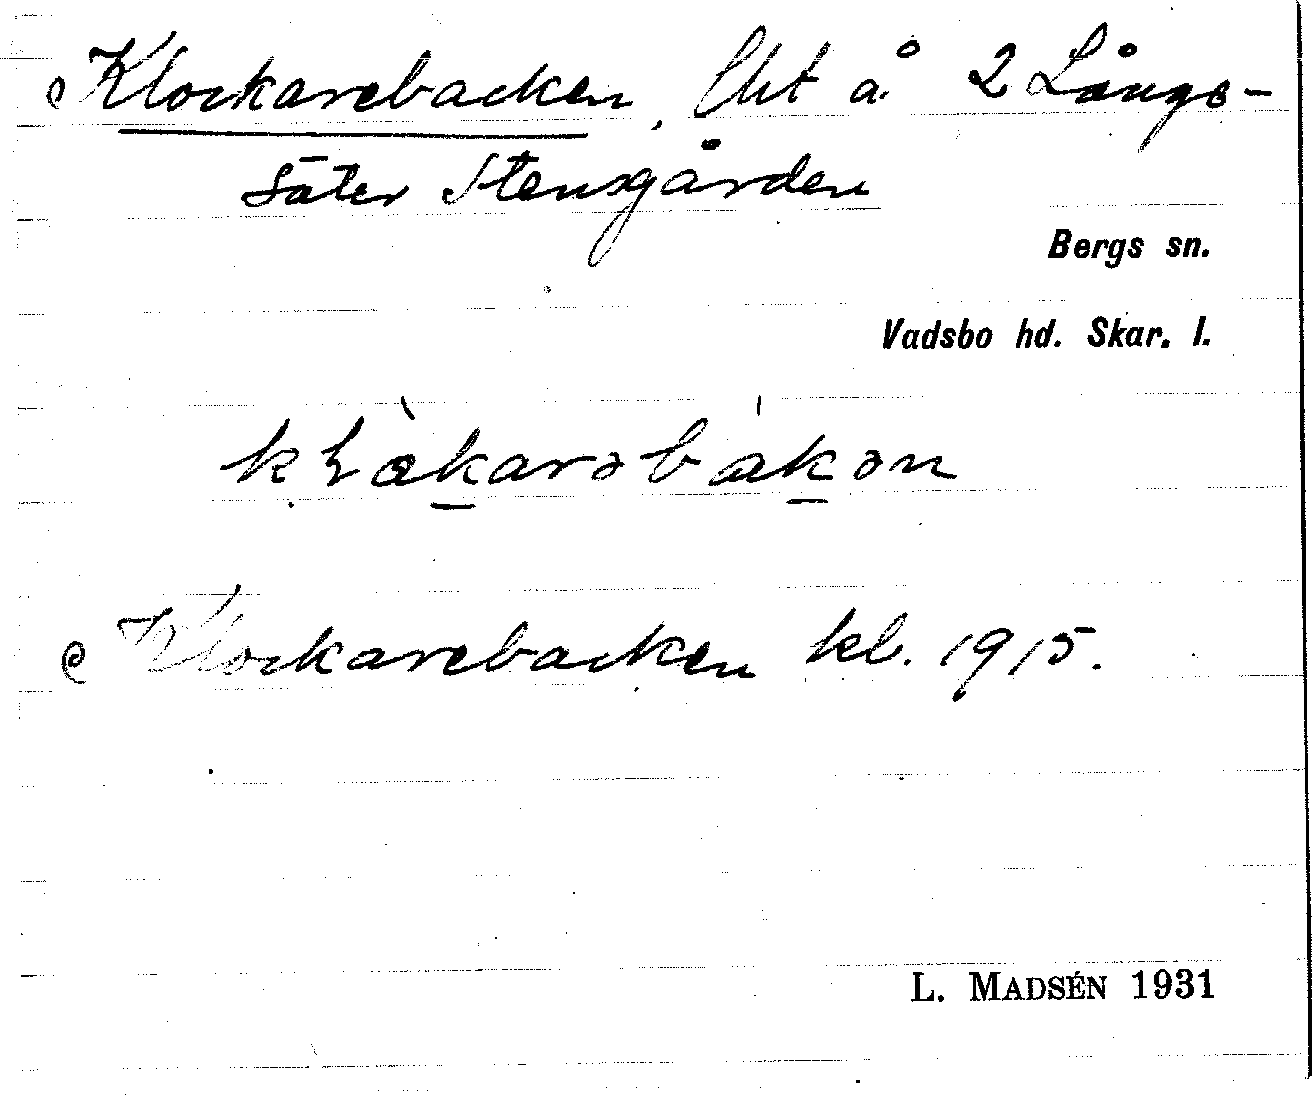 Klockarebacken, lht å 2 Långe-
säter Stensgården
Bergs sn.
Vadsbo hd. Skar. l.
Klockarebacken kl. 1915.
L. MADSÉN 1931